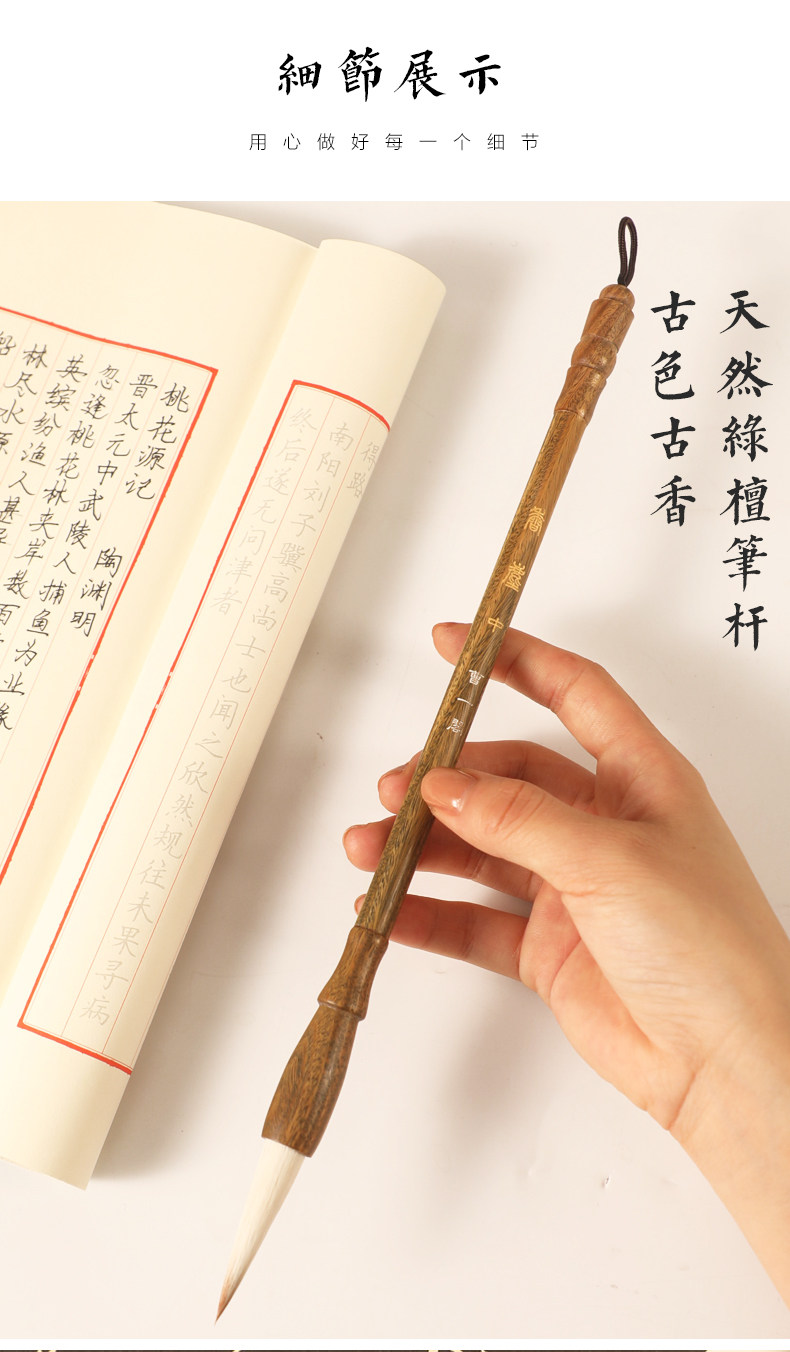 細節展示
用心做好每一个细节
天然綠檀筆杆
古色古香
得路
南阳刘子骥高尚士也闻之欣然规往未果寻病
终后遂无问津者
桃花源记 陶渊明
晋太元中武陵人捕鱼为业缘
忽逢桃花林夹岸数百
英缤纷渔人甚异
林尽水源
中